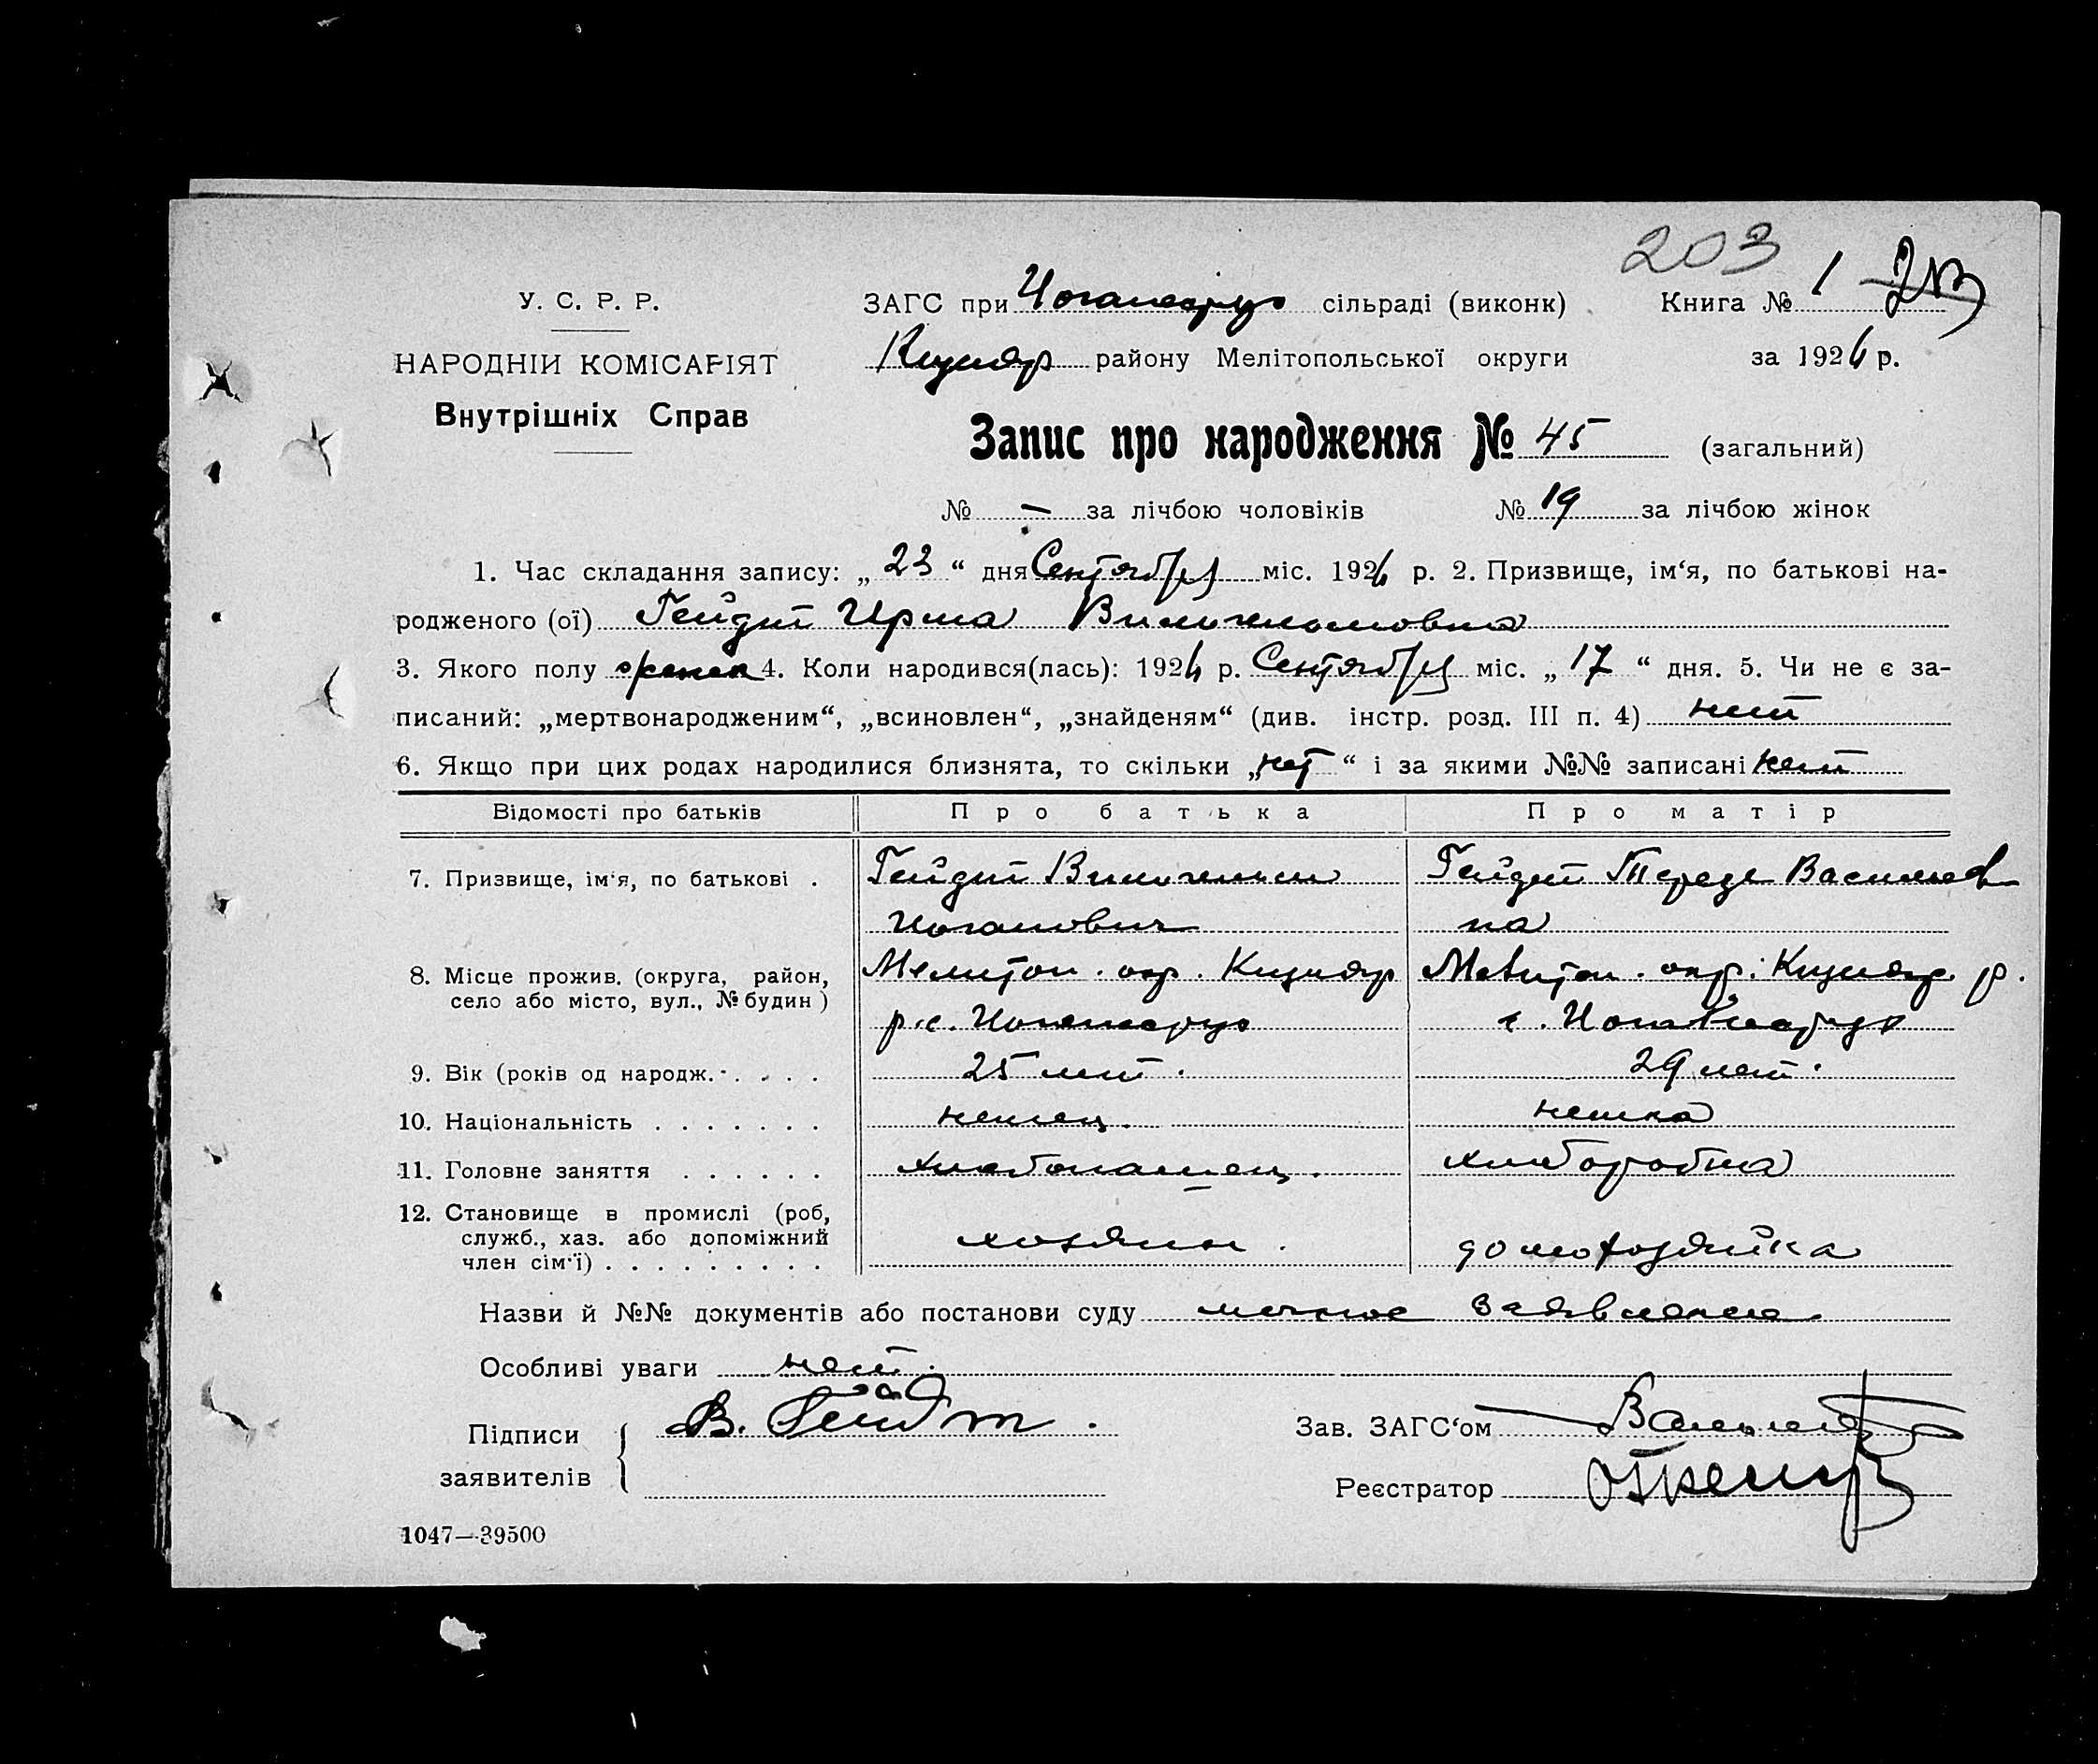 203
У. С. Р. Р.
ЗАГС при Иоганесруэ сільраді (виконк) Книга № 1
НАРОДНІЙ КОМІСАРІЯТ
Кизияр району Мелітопольської округи за 1926 р.
Внутрішніх Справ
Запис про народження № 45 (загальний)
№ — за лічбою чоловіків № 19 за лічбою жінок
1. Час складання запису: „ 23 “ дня Сентября міс. 1926 р. 2. Призвище, ім‘я, по батькові на-
родженого (ої) Гейдт Ирма Вильгельмовна
3. Якого полу женск 4. Коли народився(лась): 1926 р. Сентября міс. „ 17 “ дня. 5. Чи не є за-
писаний: „мертвонародженим“, „всиновлен“, „знайденям“ (див. інстр. розд. III п. 4) нет
6. Якщо при цих родах народилися близнята, то скільки „нет“ і за якими №№ записані нет
Відомості про батьків Про батька Про матір
7. Призвище, ім‘я, по батькові . Гейдт Вильгельм Гейдт Тереза Васильев
Иоганович на
8. Місце прожив. (округа, район, Мелитоп. окр. Кизияр Мелитоп. окр. Кизияр р.
село або місто, вул., № будин) р. с. Иоганесруэ с. Иоганесруэ
9. Вік (років од народж. . . . . 25 лет. 29 лет.
10. Національність . . . . . . . немец. немка
11. Головне заняття . . . . . . хлебопашец. хлеборобка
12. Становище в промислі (роб,
служб., хаз. або допоміжний хозяин. домохозяйка
член сім‘ї) . . . . . . . . .
Назви й №№ документів або постанови суду личное заявление.
Особливі уваги нет.
Підписи В. Гейдт. Зав. ЗАГС‘ом
заявителів Реєстратор
1047—39500